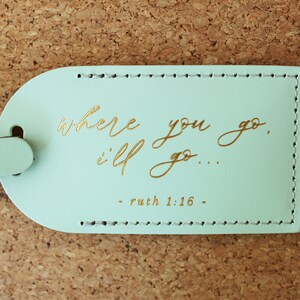 where you go,
i'll go...
- ruth 1:16 -